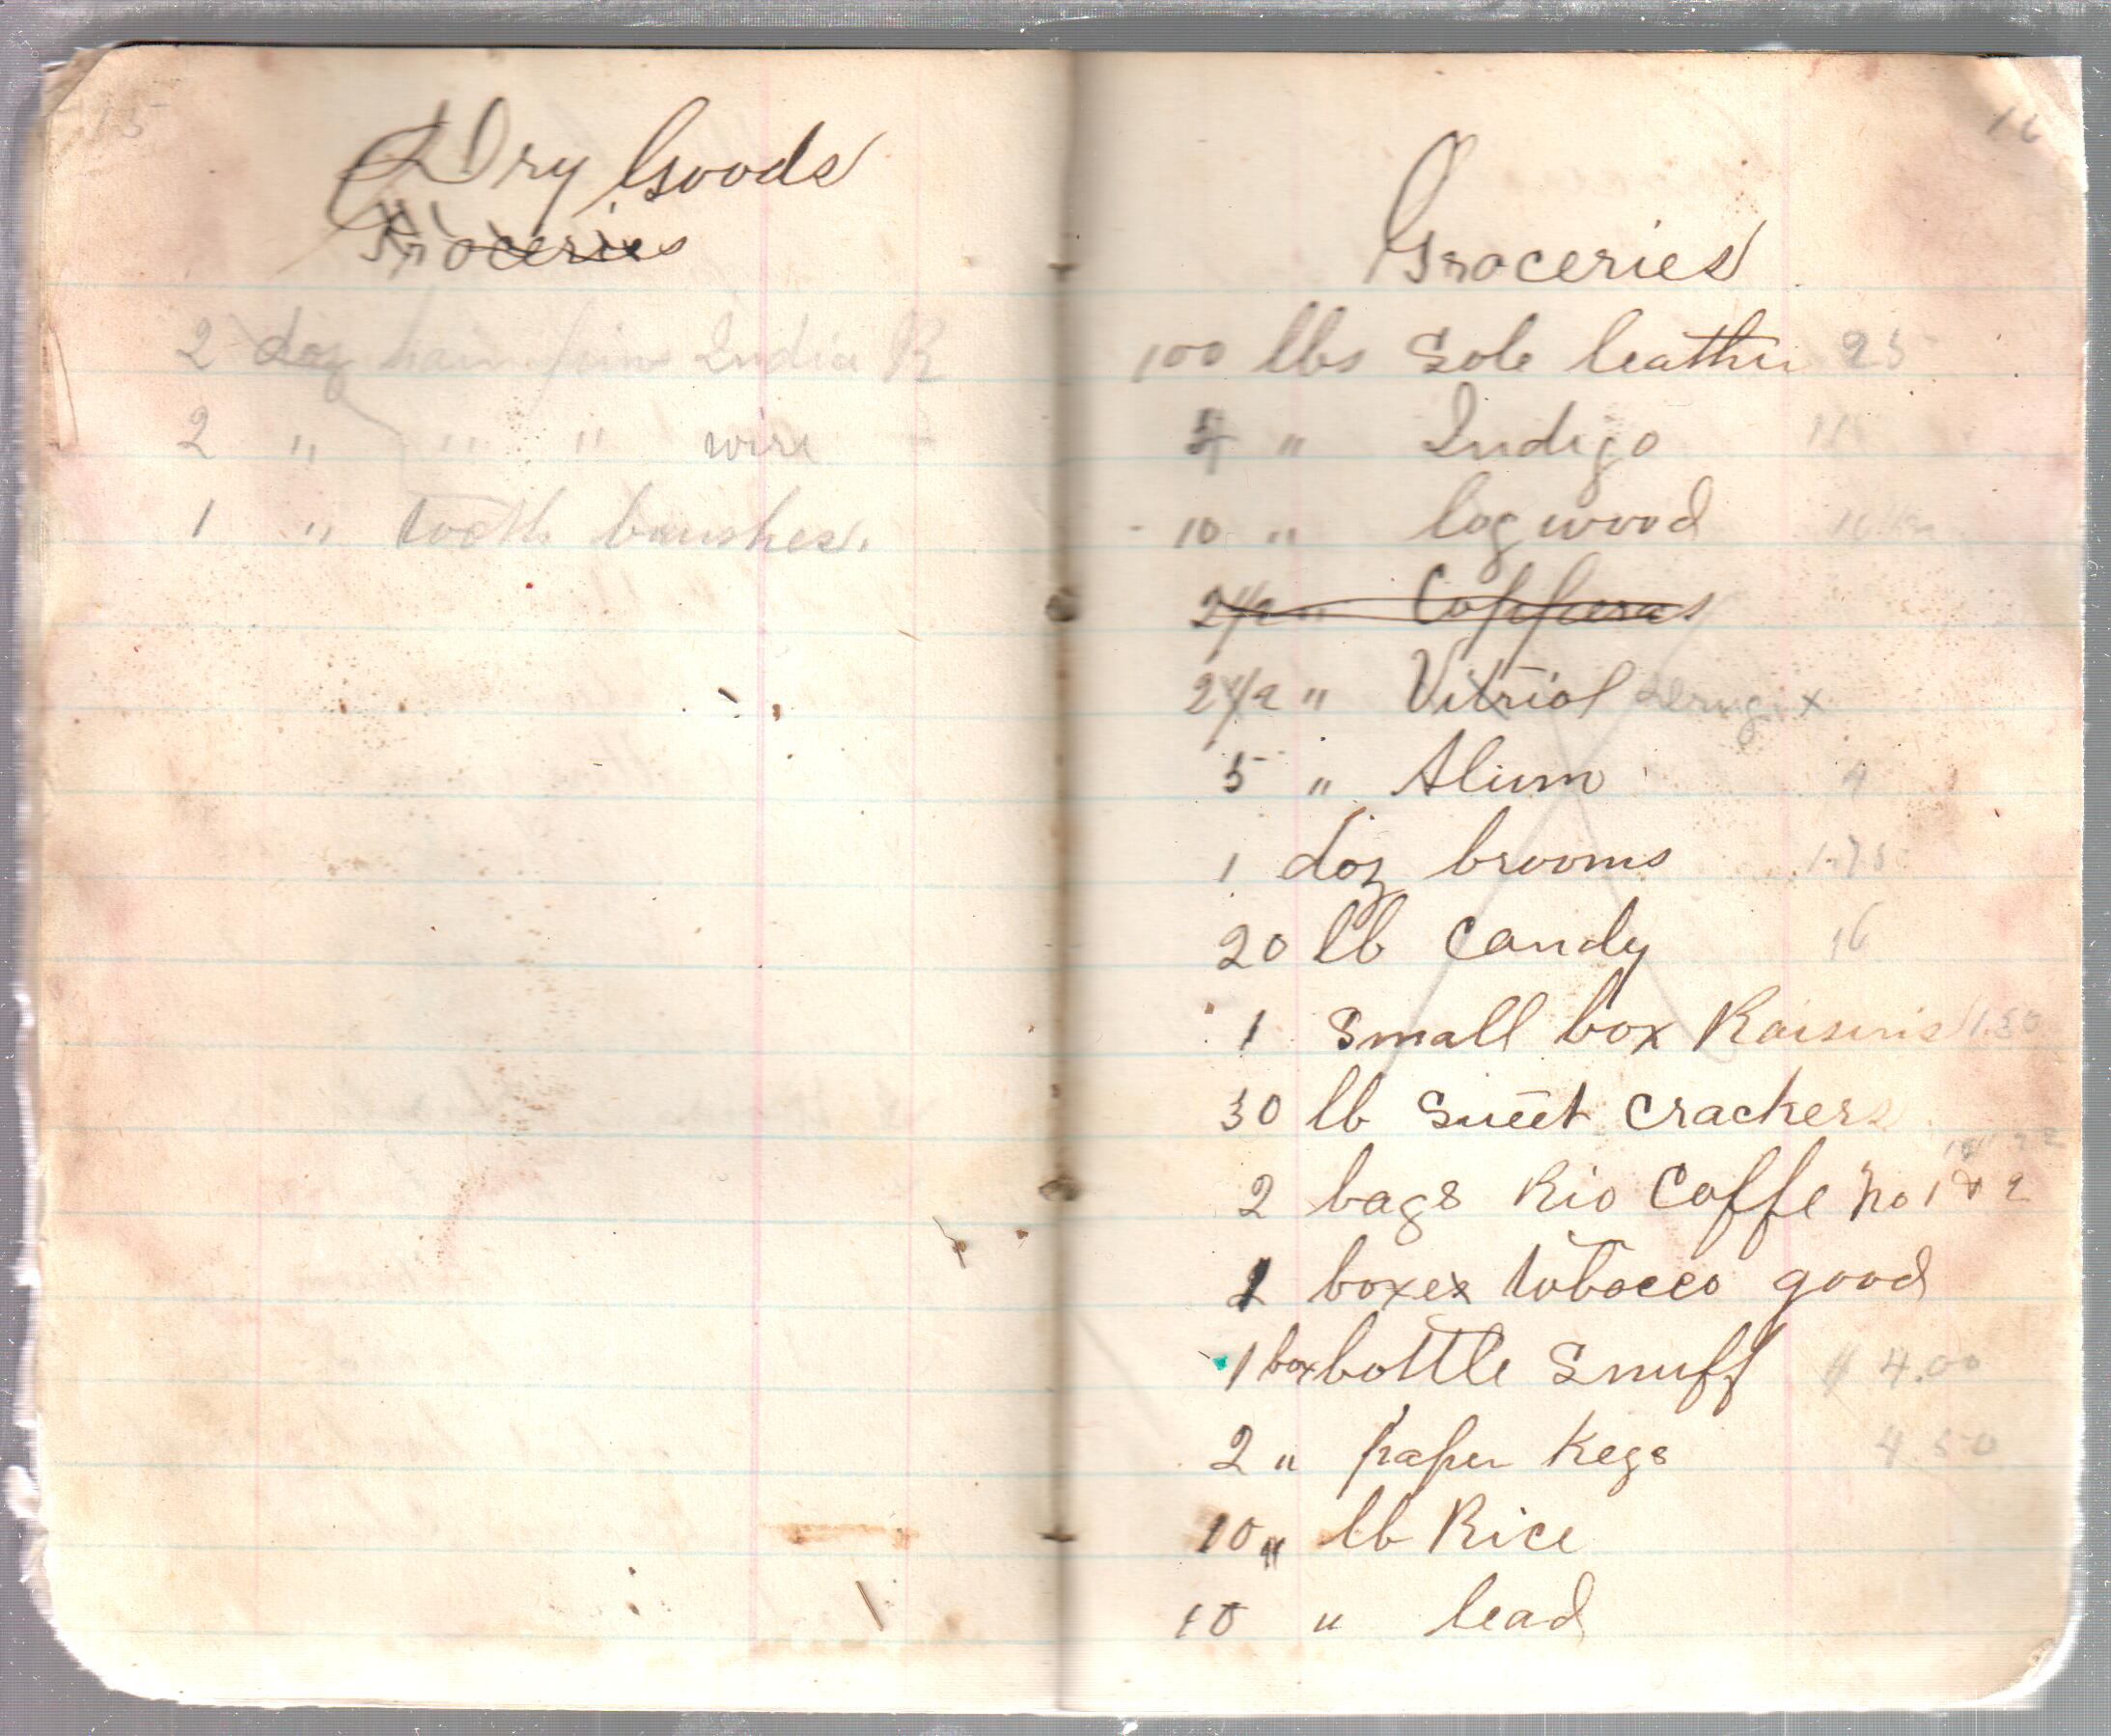 15
Dry Goods
Groceries
2 doz hair pins India R
2 " " " wire
1 " tooth brushes.
16
Groceries
100 lbs Sole leather 25
" Indigo
10 " logwood
2 1/2 " Copperas
2 1/2 " Vitriol
5 " Alum
1 doz brooms 1.75
20 lb Candy 16
1 Small box Raisins 1.50
30 lb Sweet Crackers
2 bags Rio Coffe No 1 & 2
boxes tobacco good
1 box bottle Snuff $ 4.00
2 " paper Kegs 4 50
10 " lb Rice
10 " lead